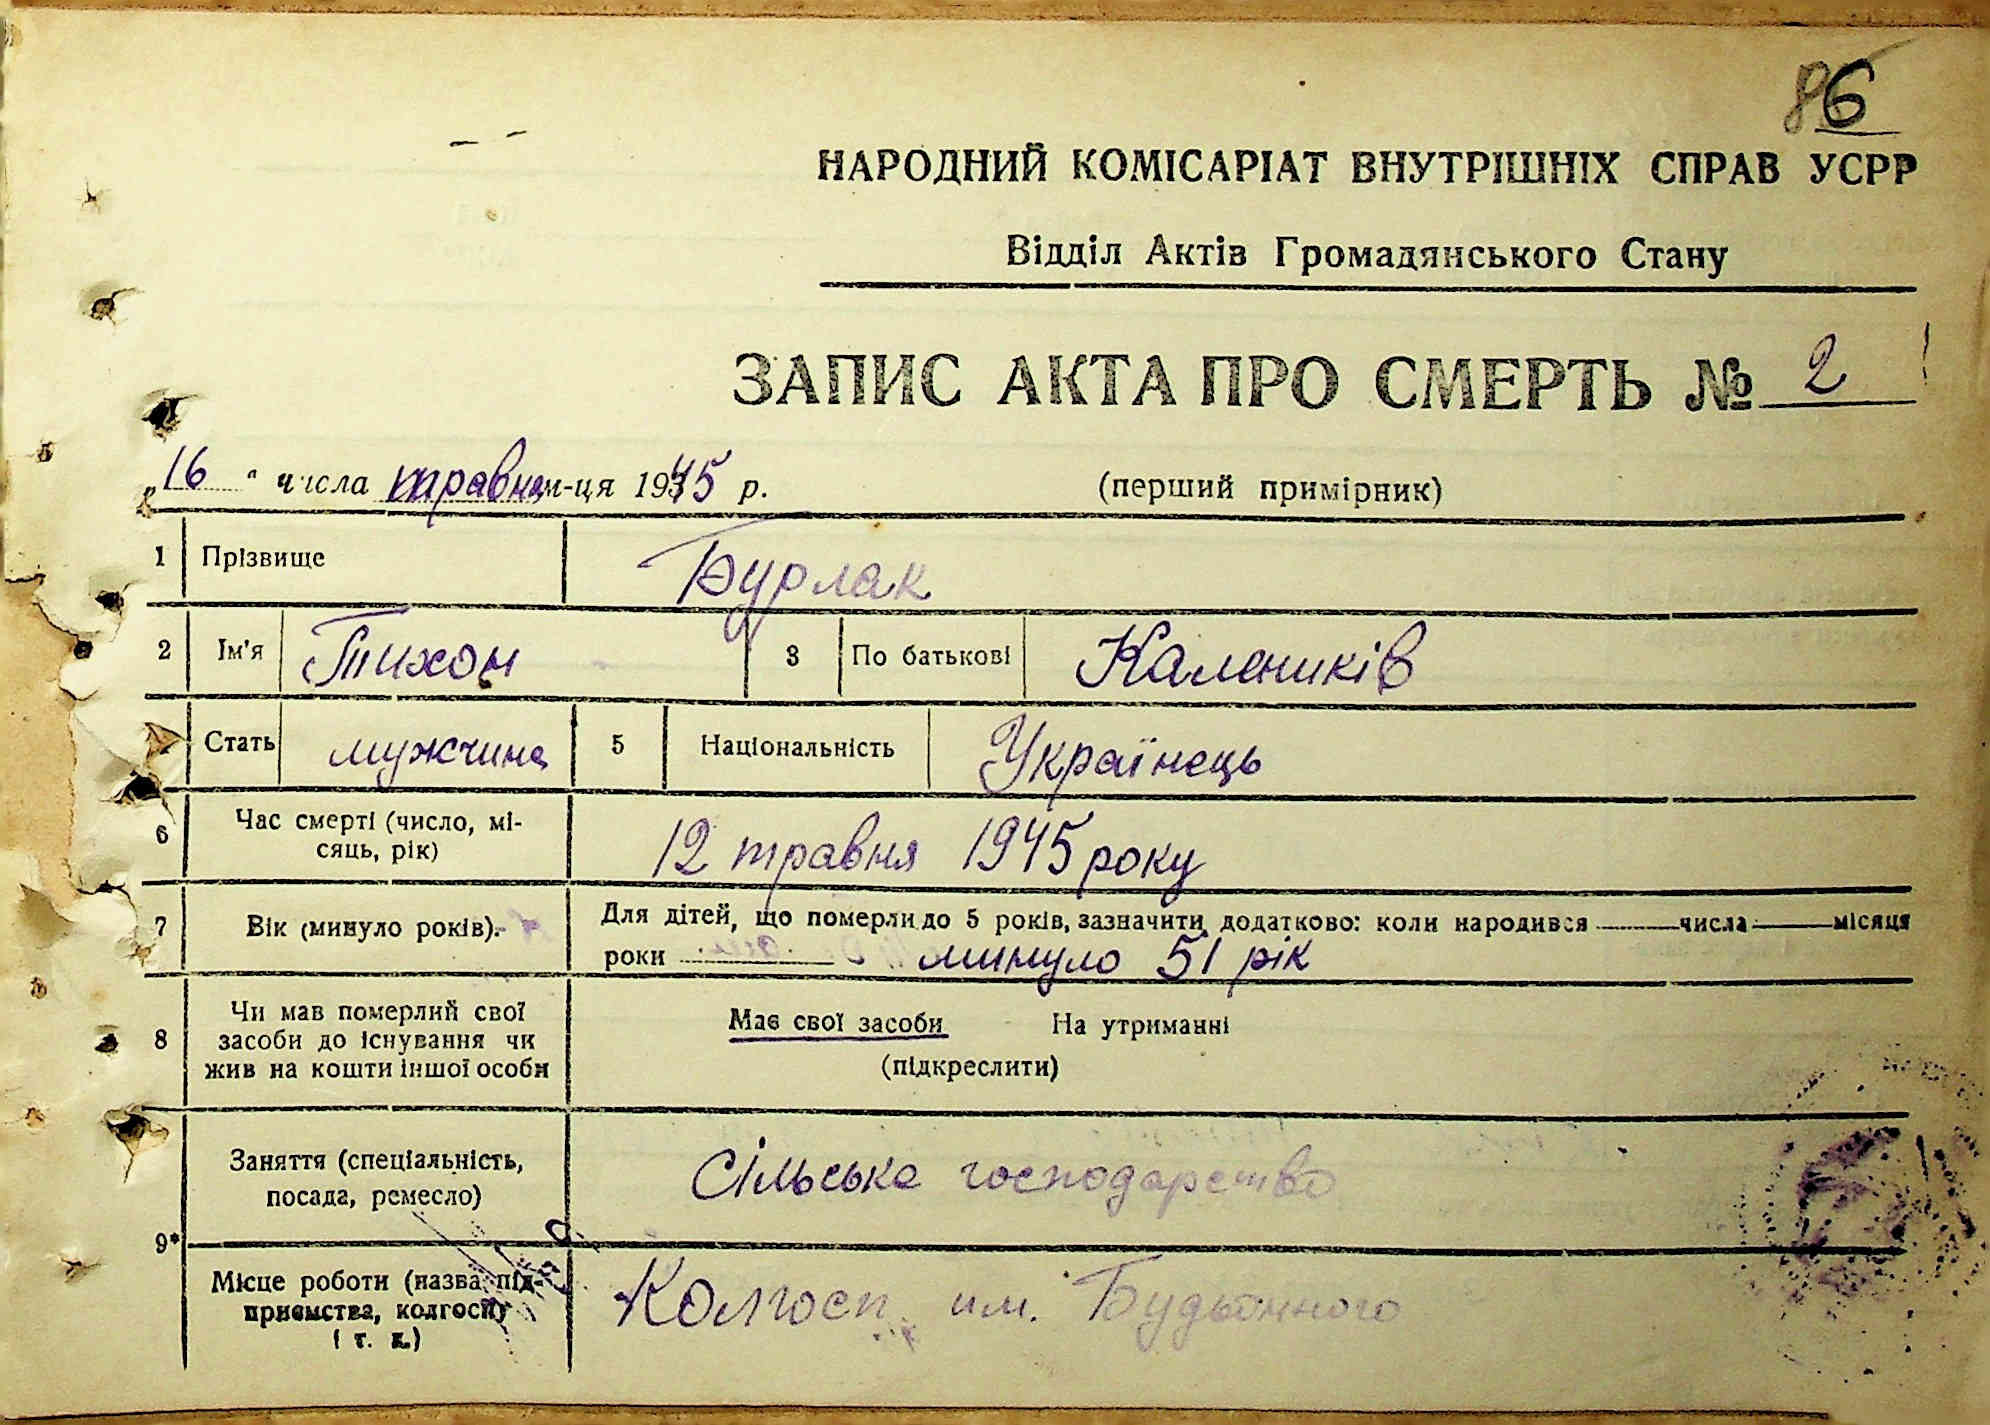 86
НАРОДНИЙ КОМІСАРІАТ ВНУТРІШНІХ СПРАВ УСРР
Відділ Актів Громадянського Стану
ЗАПИС АКТА ПРО СМЕРТЬ № 2
„16 " числа травня м-ця 1945 р. (перший примірник)
1 Прізвище Бурлак
2 Ім'я Тихон 3 По батькові Калеників
Стать мужчина 5 Національність Українець
6 Час смерті (число, мі-
сяць, рік) 12 травня 1945 року
7 Вік (минуло років). Для дітей, що померли до 5 років, зазначити додатково: коли народився числа місяця
роки минуло 51 рік
8 Чи мав померлий свої
засоби до існування чи
жив на кошти іншої особи
Має свої засоби На утриманні
(підкреслити)
9*
Заняття (спеціальність,
посада, ремесло) Сільське господарство
Місце роботи (назва під-
приємства, колгоспу
і т. д.) Колгосп им. Будьонного